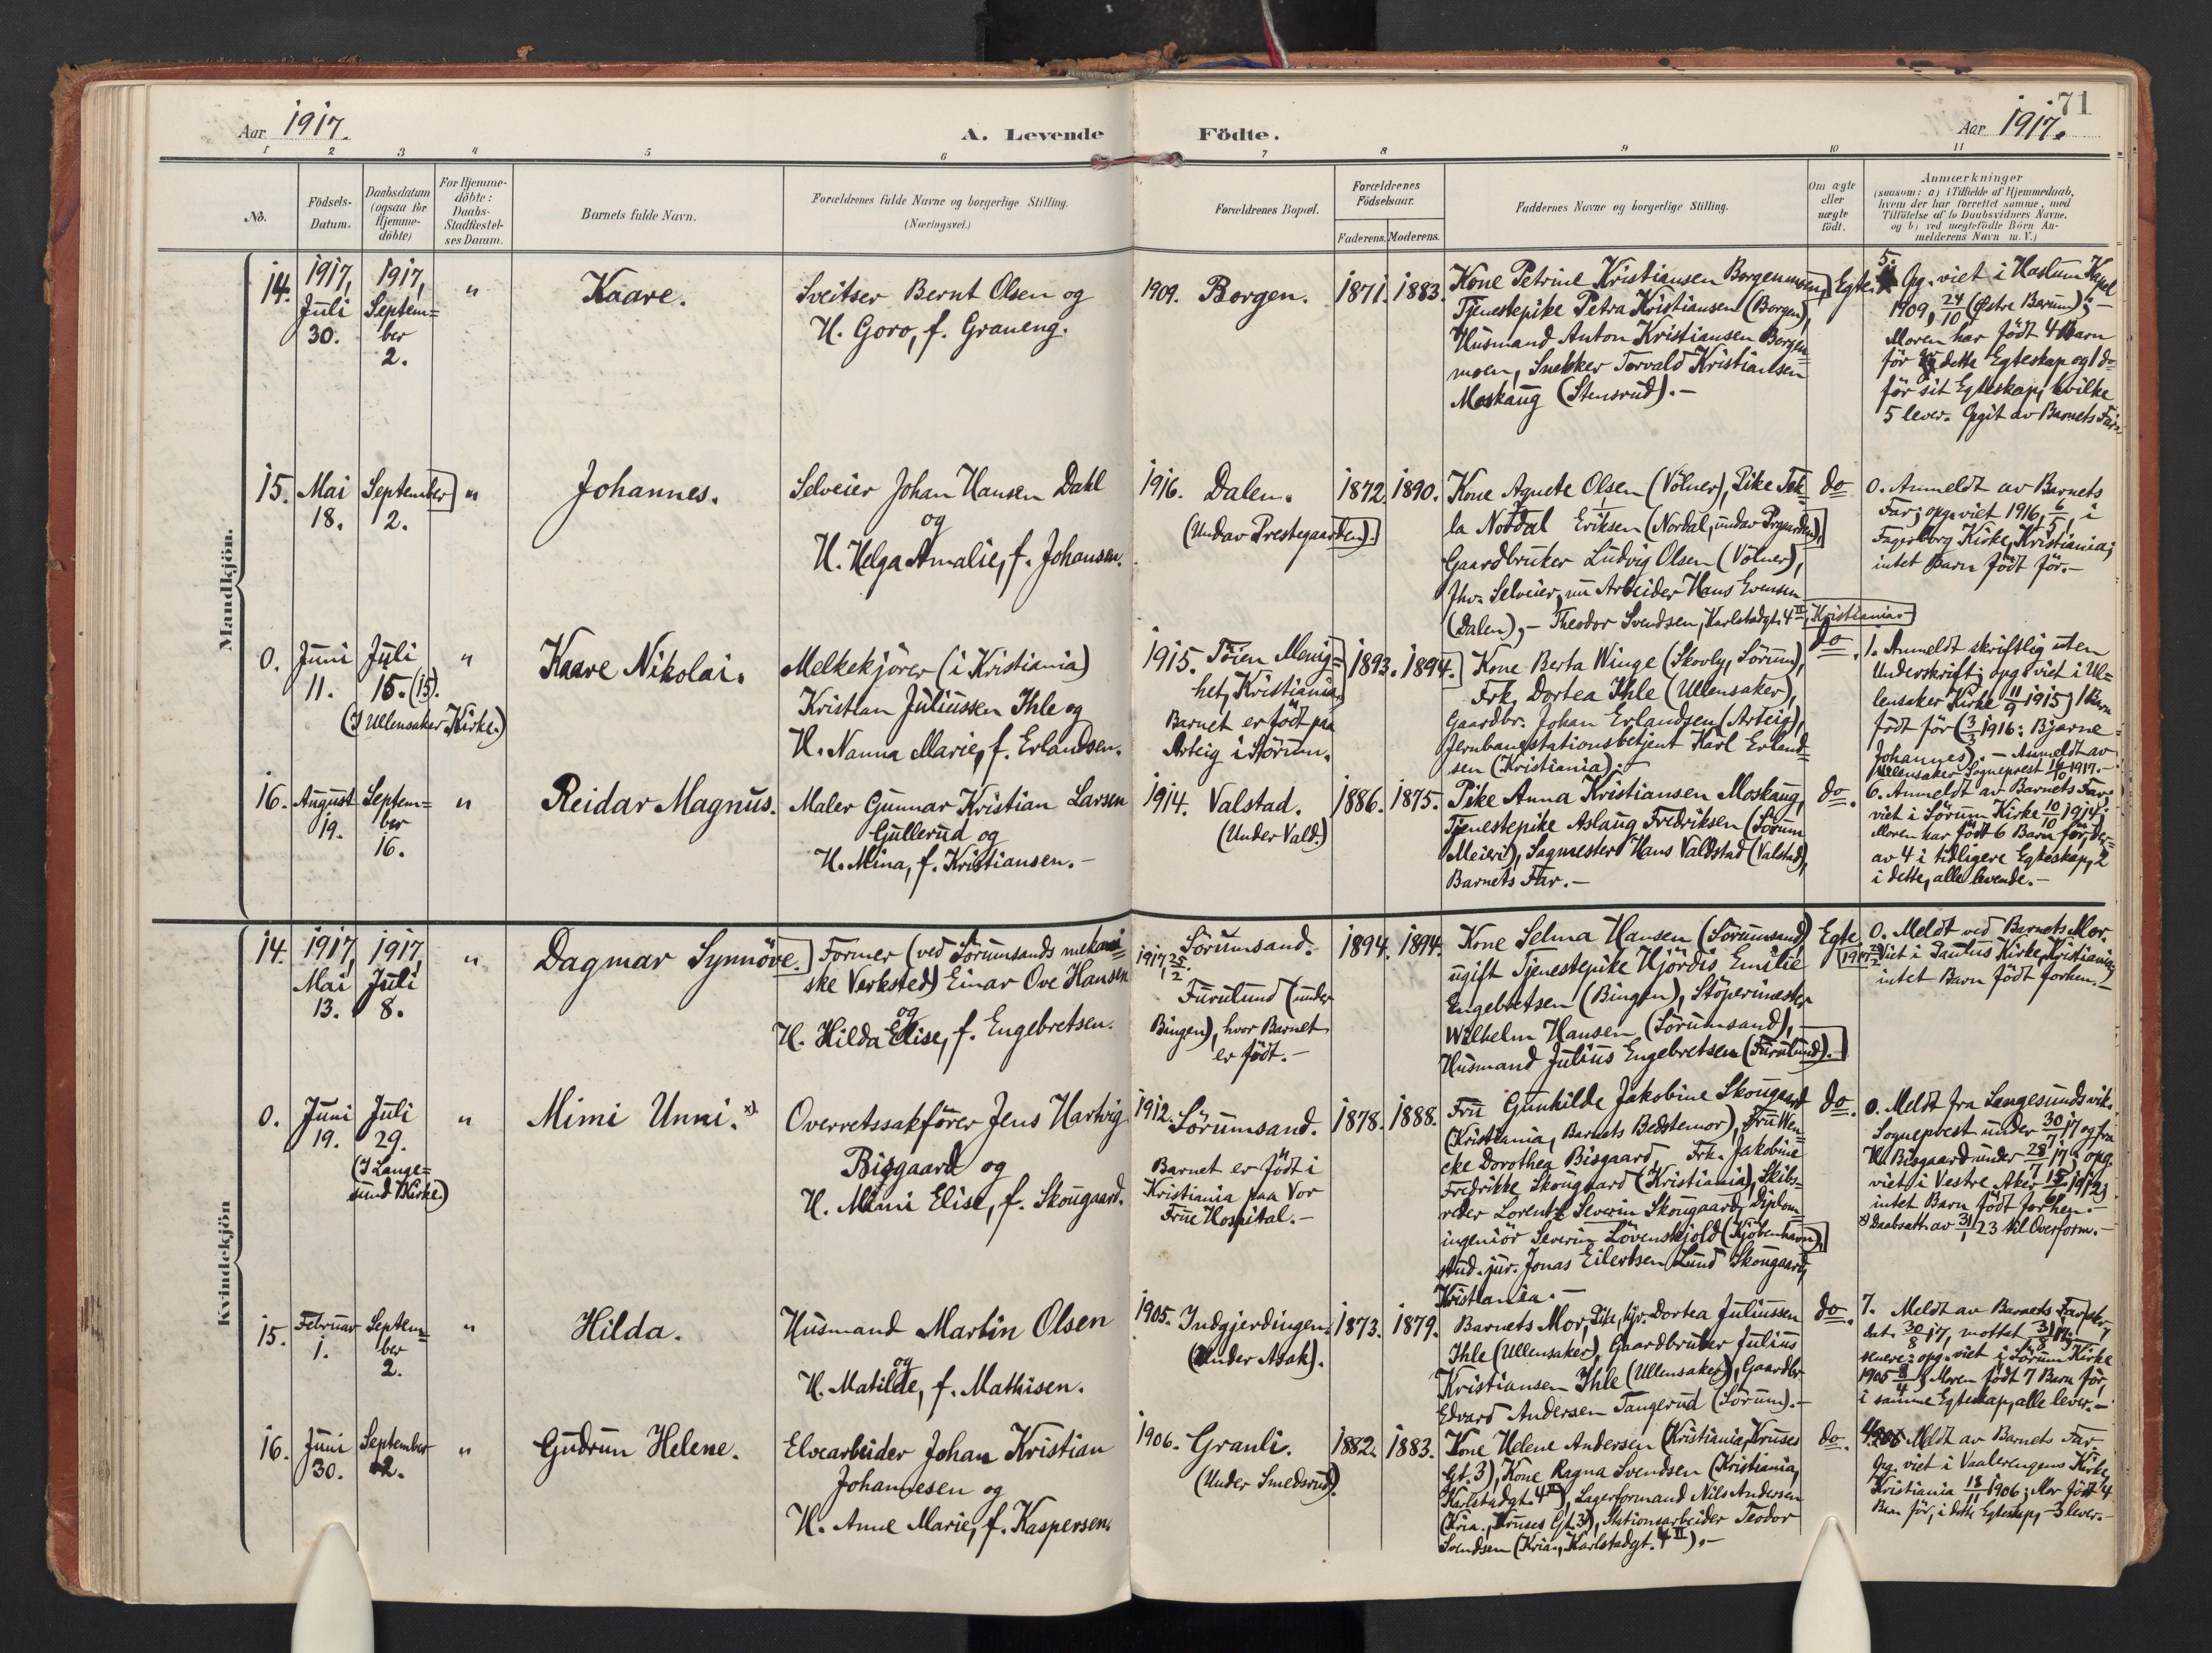 71
Aar 1917.
A. Levende Födte.
Aar 1917.
1 2 3 4 5 6 7 8 9 10 11
No.
Födsels-
Datum.
Daabsdatum
(ogsaa for
Hjemme-
döbte)
For Hjemme-
döbte:
Daabs-
Stadfæstel-
ses Datum.
Barnets fulde Navn.
Forældrenes fulde Navne og borgerlige Stilling.
(Næringsvei.)
Forældrenes Bopæl.
Forældrenes
Födselsaar.
Faderens. Moderens.
Faddernes Navne og borgerlige Stilling.
Om ægte
eller
uægte
födt.
Anmærkninger
(saasom: a) i Tilfælde af Hjemmedaab,
hvem der har forrettet samme, med
Tilföielse af to Daabsvidners Navne.
og b) ved uægtefödte Börn An-
melderens Navn m. V.)
Mandkjön.
14.
1917,
Juli
30.
1917,
Septem=
ber
2.
"
Kaare.
Sveitser Bernt Olsen og
H. Goro, f. Graneng.
1909. Borgen.
1871. 1883.
Kone Petrine Kristiansen Borgenmoen,
Tjenestepike Petra Kristiansen (Borgen),
Husmand Anton Kristiansen Borgen=
moen, Snekker Torvald Kristiansen
Moskaug (Stensrud).-
Egte.
5. Og. viet i Haslum Kapel
1909, 24/10 (Östre Bærum);-
Moren har födt 4 Barn
för i dette Egteskap og 1 do
för sit Egteskap, hvilke
5 lever. Opgit av Barnets Far.
15.
Mai
18.
September
2.
"
Johannes.
Selveier Johan Hansen Dahl
og
H. Helga Amalie, f. Johansen.
1916. Dalen.
(Undav Prestegaarden).
1872. 1890.
Kone Agnete Olsen (Völner), Pike Tek=
la Nordal Eriksen (Nordal, undav Prgaarden),
Gaardbruker Ludvig Olsen (Völner),
fhv. Selveier, nu Arbeider Hans Evensen
(Dalen),- Theodor Svendsen, Karlstadgt. 4 II, Kristiania.
do
0. Anmeldt av Barnets
Far; opg. viet 1916, 6/5, i
Fagerborg Kirke, Kristiania;
intet Barn födt för.-
0.
Juni
11.
Juli
15. (15).
(I Ullensaker Kirke.)
"
Kaare Nikolai.
Melkekjörer (i Kristiania)
Kristian Juliussen Ihle og
H. Nanna Marie, f. Erlandsen.
1915. Töien Menig=
het, Kristiania.
Barnet er födt paa
Arteig i Sörum.
1893. 1894.
Kone Berta Winge (Skovly, Sörum),
Frk. Dortea Ihle (Ullensaker),
Gaardbr. Johan Erlandsen (Arteig),
Jernbanestationsbetjent Karl Erland=
sen (Kristiania).-
do.
1. Anmeldt skriftlig uten
Underskrift; opg. viet i Ul=
lensaker Kirke 11/9 1915; 1 Barn
födt för (3/3 1916: Bjarne
Johannes).- Anmeldt av
Ullensaker Sogneprest 16/10 1917.-
16.
August
19.
Septem=
ber
16.
"
Reidar Magnus.
Maler Gunnar Kristian Larsen
Gullerud og
H. Mina, f. Kristiansen.-
1914. Valstad.
(Under Vald.)
1886. 1875.
Pike Anna Kristiansen Moskaug,
Tjenestepike Aslaug Fredriksen (Sörum
Meieri), Sagmester Hans Valdstad (Valstad),
Barnets Far.-
do.
6. Anmeldt av Barnets Far;
viet i Sörum Kirke 10/10 1914;
Moren har födt 6 Barn för, der=
av 4 i tidligere Egteskap, 2
i dette, alle levende.-
Kvindekjön
14.
1917,
Mai
13.
1917,
Juli
8.
"
Dagmar Synnöve.
Former (ved Sörumsands mekani=
ske Verksted) Einar Ove Hansen
og
H. Hilda Elise, f. Engebretsen.
1917 25/2. Sörumsand.
Furulund (under
Bingen), hvor Barnet
er födt.-
1894. 1894.
Kone Selma Hansen (Sörumsand)
ugift Tjenestepike Hjördis Emilie
Engebretsen (Bingen), Stöperimester
Wilhelm Hansen (Sörumsand),
Husmand Julius Engebretsen (Furulund).-
Egte.
0. Meldt ved Barnets Mor.
Viet i Paulus Kirke, Kristiania, 1917 25/2
intet Barn födt forhen.-
0.
Juni
19.
Juli
29.
(I Lange=
sund Kirke.)
"
Mimi Unni. x)
Overretssakförer Jens Hartvig
Bisgaard og
H. Mimi Elise, f. Skougaard.
1912. Sörumsand.
Barnet er födt i
Kristiania paa Vor
Frue Hospital.-
1878. 1888.
Fru Gunhilde Jakobine Skougaard
(Kristiania, Barnets Bedstemor), Fru Wen=
cke Dorothea Bisgaard, Frk. Jakobine
Fredrikke Skougaard (Kristiania), Skibs=
reder Lorentz Severin Skougaard, Diplom=
ingeniör Severin Lövenskjold (Kjöbenhavn),
stud. jur. Jonas Eilertsen Lund Skougaard,
Kristiania.-
do.
0. Meldt fra Langesunds
Sogneprest under 30/7 17 og fra
H. Bisgaard under 28/7 17; opg.
viet i Vestre Aker 15/6 1912;
intet Barn födt forhen.-
x) Daabsatt. av 31/1 23 til Overform.-
15.
Februar
1.
Septem=
ber
2.
"
Hilda.
Husmand Martin Olsen
og
H. Matilde, f. Mathisen.
1905. Indgjerdingen.
(Under Asak).
1873. 1879.
Barnets Mor, Pike, Gjr. Dortea Juliussen
Ihle (Ullensaker), Gaardbruker Julius
Kristiansen Ihle (Ullensaker), Gaardbr.
Edvard Andersen Tangerud (Sörum).-
do.
7. Meldt av Barnets Far
dat. 30/8 17, mottat 31/8 17
senere; opg. viet i Sörum Kirke
1905 9/4; Moren födt 7 Barn för,
i samme Egteskap, alle lever.-
16.
Juni
30.
September
2.
"
Gudrun Helene.
Elvearbeider Johan Kristian
Johannesen og
H. Anne Marie, f. Kaspersen.
1906. Granli.
(Under Smedsrud).
1882. 1883.
Kone Helene Andersen (Kristiania, Kruses
Gt. 3), Kone Ragna Svendsen (Kristiania,
Karlstadgt. 4 II), Lagerformand Nils Andersen
(Kria., Kruses Gt. 3), Stationsarbeider Teodor
Svendsen (Kria., Karlstadgt. 4 II).-
do.
4. Meldt av Barnets Far.
Opg. viet i Vaalerengens Kirke,
Kristiania 18/11 1906; Mor födt 4
Barn för, i dette Egteskap, 3 lever.-